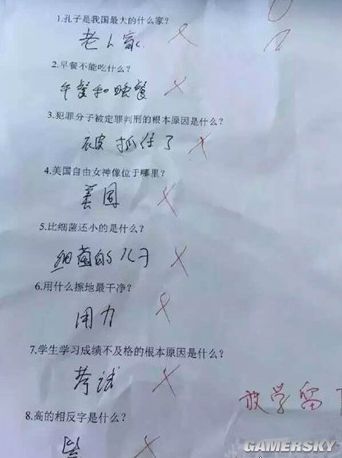 1.孔子是我国最大的什么家?
老人家
2.早餐不能吃什么?
午餐和晚餐
3.犯罪分子被定罪判刑的根本原因是什么?
被抓住了
4.美国自由女神像位于哪里?
美国
5.比细菌还小的是什么?
细菌的儿子
6.用什么擦地最干净?
用力
7.学生学习成绩不及格的根本原因是什么?
考试
放学留
8.高的相反字是什么?
GAMERSKY